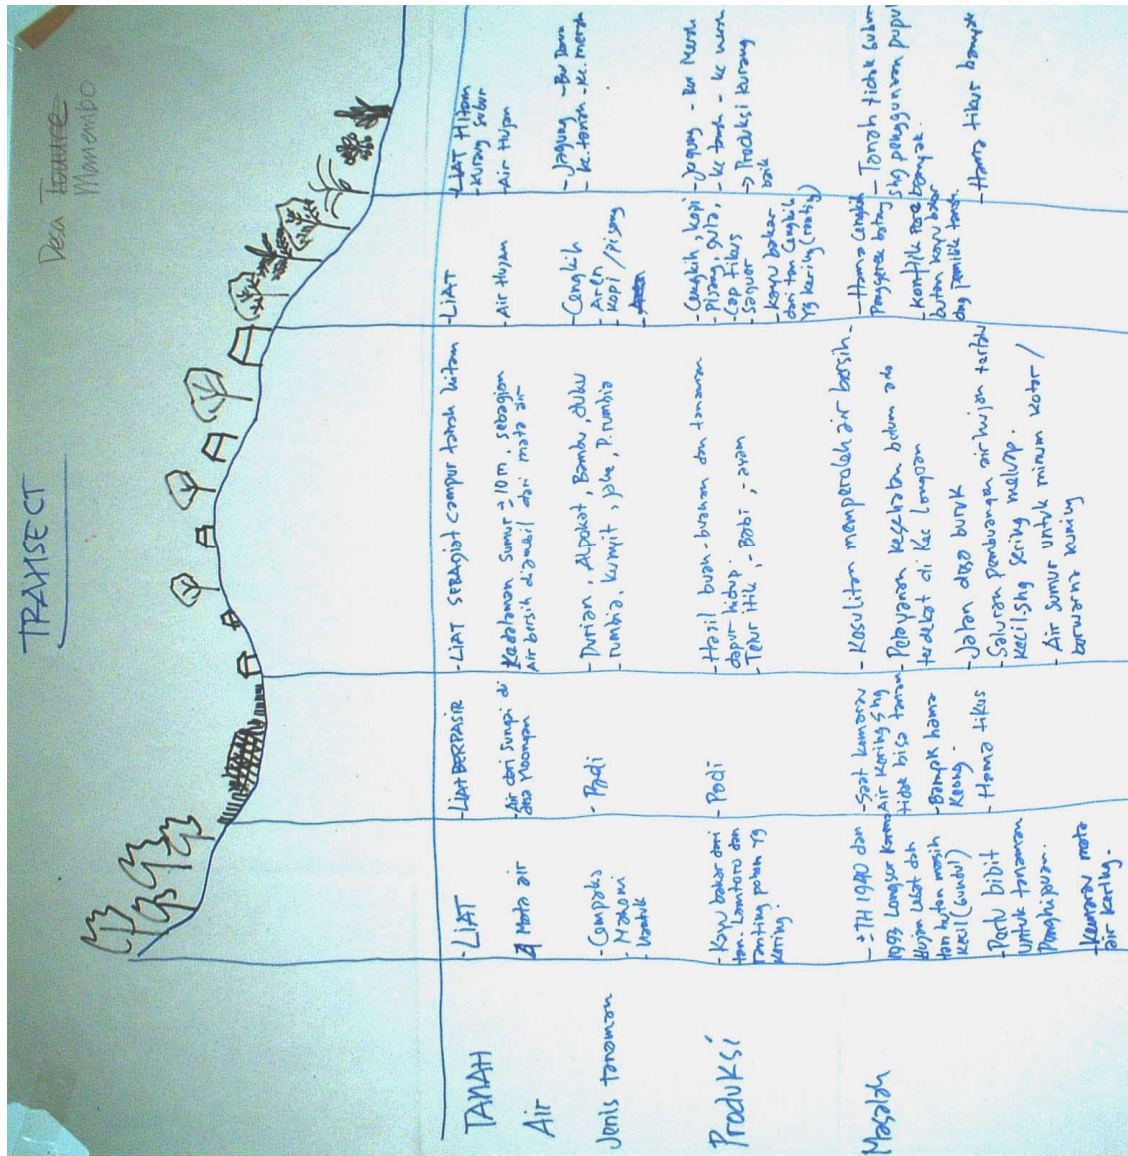 TRANSECT
Desa
Manembo
TANAH
- LIAT
- LIAT BERPASIR
- LIAT SEBAGIAT campur tanah hitam
- LIAT
- LIAT HITAM
- Kurang subur
Air
Mata air
- Air dari sungai di
desa Noongan
Kedalaman Sumur ± 10 m, sebagian
Air bersih diambil dari mata air
- Air Hujan
- Air Hujan
Jenis tanaman
- Cempaka
- Mahoni
- Padi
- Durian, Alpokat, Bambu, duku
rumbia, kunyit, jahe, P. rumbia
- Cengkih
- Aren
- Kopi / Pisang
- Aren
- Jagung
- kc. tanah - kc. merah
Produksi
- Kayu bakar dari
tan. Lamtoro dan
ranting pohon yg
kering.
- Padi
- Hasil buah-buahan dan tanaman
dapur hidup.
- Telur itik, - Babi, - ayam
- Cengkih, kopi
- Pisang, gula,
- Cap tikus
- Saguer
- Kayu bakar
dari tan Cengkih
yg kering (ranting)
- Jagung - Bw Merah
- kc tanah - kc merah
→ Produksi kurang
baik
Masalah
- ± TH 1940 dan
1993 Longsor karena
Hujan lebat dan
tan hutan masih
kecil (Gundul)
- Perlu bibit
untuk tanaman
Penghijauan.
- Kemarau mata
air kering.
- Saat kemarau
Air kering shg
tidak bisa tanam
- Banyak hama
Keong.
- Hama tikus
- Kesulitan memperoleh air bersih.
- Pelayanan kesehatan belum ada
terdekat di Kec Langoan
- Jalan desa buruk
- Saluran pembuangan air hujan terlalu
kecil, shg sering meluap.
- Air Sumur untuk minum kotor /
berwarna kuning
- Hama Cengkih
Penggerek batang
- Konflik
butan kayu bakar
dng pemilik tanah.
- Tanah tidak subur
shg penggunaan pupuk
banyak.
- Hama tikus banyak